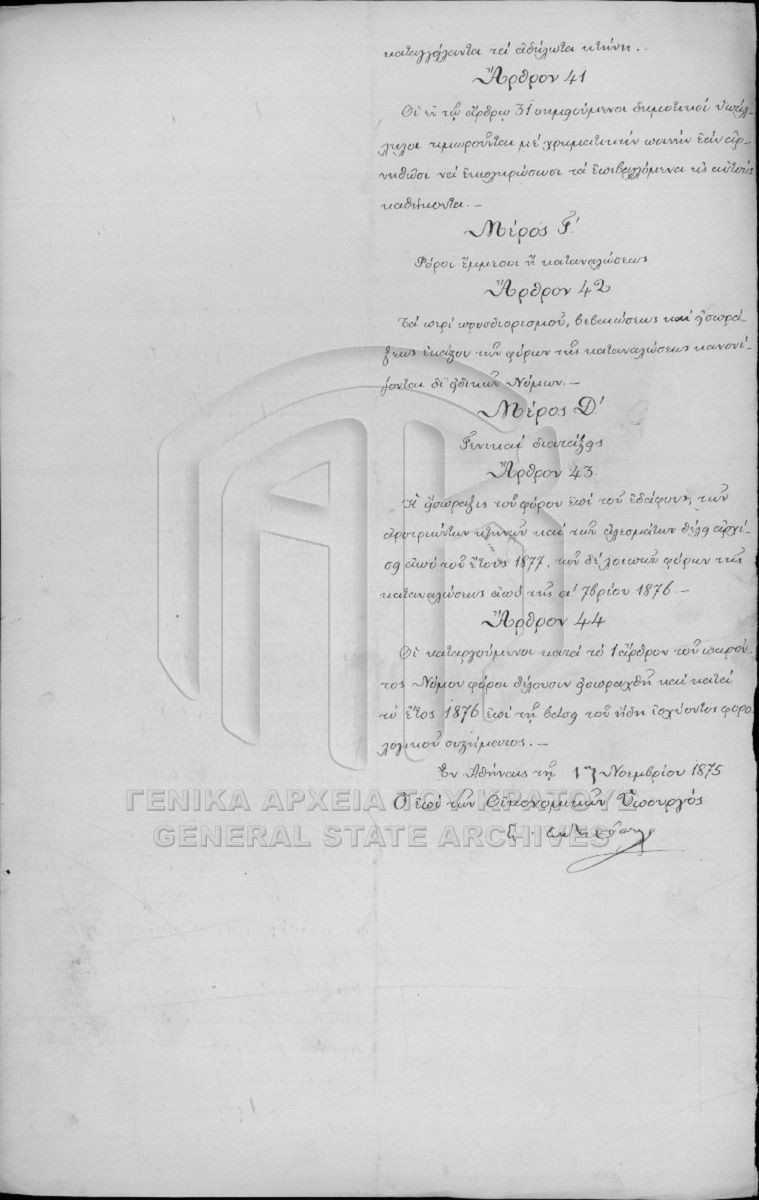 καταγγέλλοντα τὰ ἀδήλωτα κτήνη.
Ἄρθρον 41
Οἱ ἐν τῷ ἄρθρῳ 31 σημειούμενοι δημοτικοὶ ὑπάλ-
ληλοι τιμωροῦνται μὲ χρηματικὴν ποινὴν ἐὰν ἀρ-
νηθῶσι νὰ ἐκπληρώσωσι τὰ ἐπιβαλλόμενα εἰς αὐτοὺς
καθήκοντα.—
Μέρος Γ΄.
Φόροι ἔμμεσοι ἢ καταναλώσεως
Ἄρθρον 42
Τὰ περὶ προσδιορισμοῦ, βεβαιώσεως καὶ εἰσπρά-
ξεως ἑκάστου τῶν φόρων τῆς καταναλώσεως κανονί-
ζονται δι᾽ εἰδικῶν Νόμων.—
Μέρος Δ΄
Γενικαὶ διατάξεις
Ἄρθρον 43.
Ἡ εἴσπραξις τοῦ φόρου ἐπὶ τοῦ ἐδάφους, τῶν
ἀροτριώντων κτηνῶν καὶ τῶν ἀλεσμάτων θέλει ἀρχί-
σει ἀπὸ τοῦ ἔτους 1877, τῶν δὲ λοιπῶν φόρων τῆς
καταναλώσεως ἀπὸ τῆς α΄ 7βρίου 1876.—
Ἄρθρον 44
Οἱ καταργούμενοι κατὰ τὸ 1 ἄρθρον τοῦ παρόν-
τος Νόμου φόροι θέλουσιν εἰσπραχθῆ καὶ κατὰ
τὸ ἔτος 1876 ἐπὶ τῇ βάσει τοῦ ἤδη ἰσχύοντος φορο-
λογικοῦ συστήματος.—
Ἐν Ἀθήναις τῇ 17 Νοεμβρίου 1875
Ὁ ἐπὶ τῶν Οἰκονομικῶν Ὑπουργός
ΓΕΝΙΚΑ ΑΡΧΕΙΑ ΤΟΥ ΚΡΑΤΟΥΣ
GENERAL STATE ARCHIVES